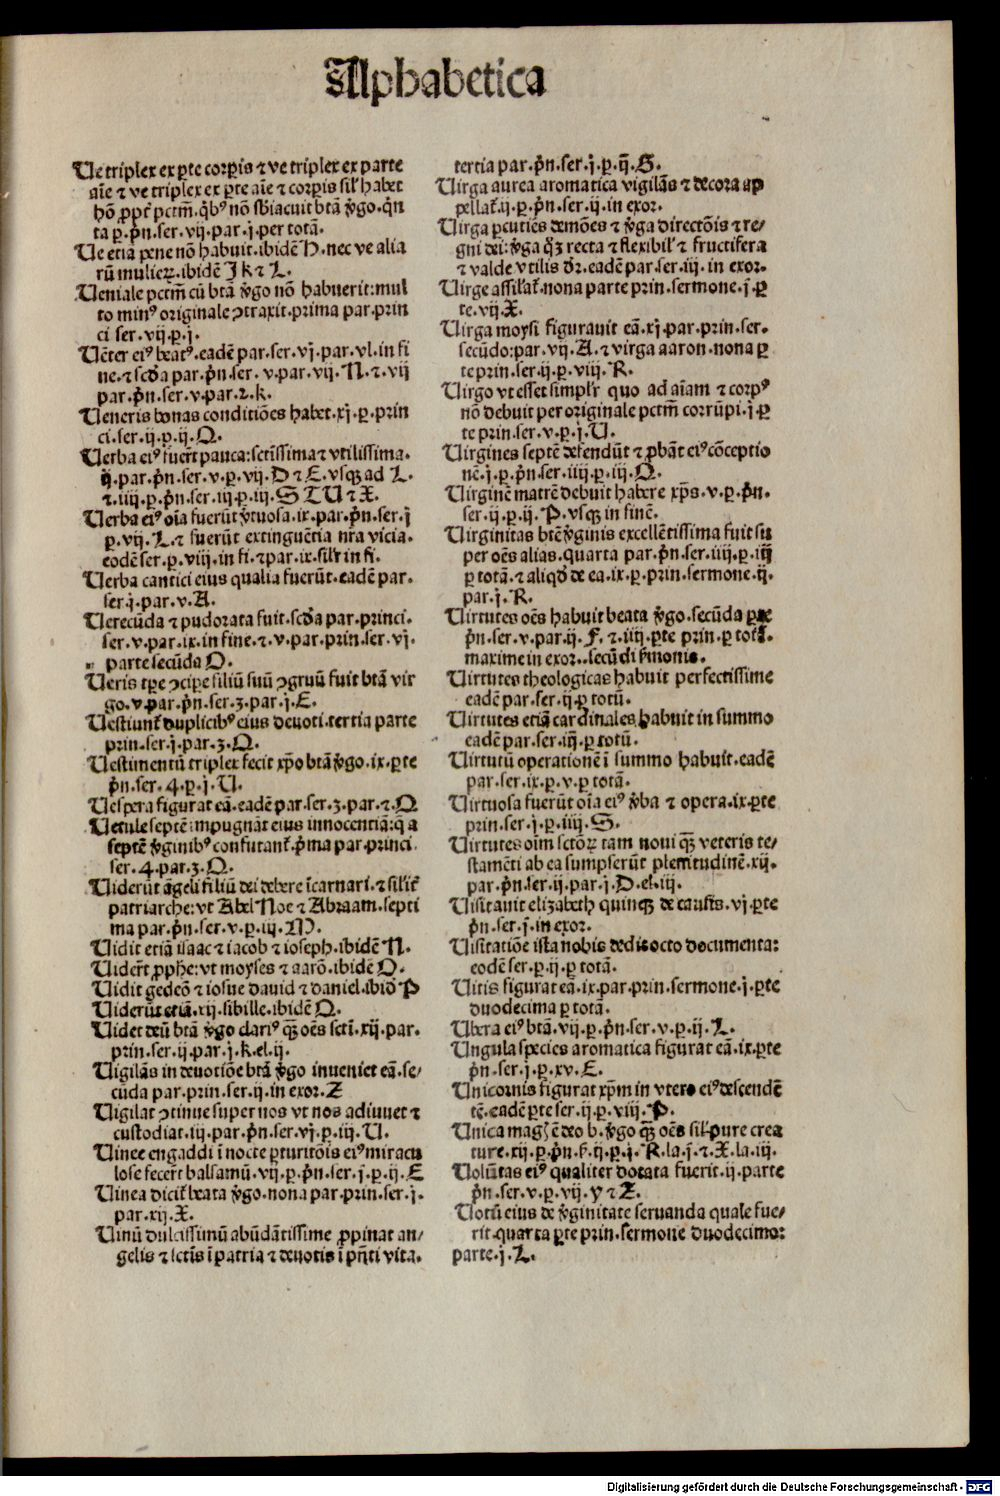 Alphabetica
Ue triplex ex ꝑte corꝑis ⁊ ve triplex ex parte
aīe ⁊ ve triplex ex ꝑte aīe ⁊ corꝑis sil' habet
hō ꝓpt̄ pctm̄.q̄bꝰ nō sbiacuit btā v̓go.q̄n
ta ꝑ.p̄n.ser.vij.par.j.per totā.
Ue etiā pene nō habuit.ibidē H.nec ve alia
rū mulieꝝ.ibidē I k ⁊ L.
Ueniale pctm̄ cū btā v̓go nō habuerit:mul
to minꝰ originale ꝯtraxit.prima par.prin
ci ser.vij.p.j.
Uēter eiꝰ beatꝰ.eadē par.ser.vj.par.vl.in fi
ne.⁊ scd̄a par.p̄n.ser.v.par.vij.N.⁊.vij
par.p̄n.ser.v.par.2.k.
Ueneris bonas conditiōes habet.xj.p.prin
ci.ser.ij.p.ij.Q.
Uerba eiꝰ fuer̄t pauca:sctīssima ⁊ vtilissima.
ij.par.p̄n.ser.v.p.vij.D ⁊ E.vsqꝫ ad L.
⁊.iiij.p.p̄n.ser.iij.p.iij.S T U ⁊ X.
Uerba eiꝰ oīa fuerūt v̓tuosa.ix.par.p̄n.ser.j
p.vij.L.⁊ fuerūt extinguentia nr̄a vicia.
eodē ser.p.viij.in fi.⁊ par.ix.silr̄ in fi.
Uerba cantici eius qualia fuerūt.eadē par.
ser.j.par.v.A.
Uerecūda ⁊ pudorata fuit.scd̄a par.princi.
ser.v.par.ix.in fine.⁊.v.par.prin.ser.vj.
parte secūda O.
Ueris tꝑe ꝯciꝑe filiū suū ꝯgruū fuit btā vir
go.v.par.p̄n.ser.3.par.j.E.
Uestiunt̄ duplicibꝰ eius deuoti.tertia parte
prin.ser.j.par.3.Q.
Uestimentū triplex fecit xp̄o btā v̓go.ix.ꝑte
p̄n.ser.4.p.j.U.
Uespera figurat eā.eadē par.ser.3.par.2.Q
Uetule septē impugnāt eius innocentiā:q̄ a
septē v̓ginibꝰ confutant̄.p̄ma par.princi.
ser.4.par.3.Q.
Uiderūt āgeli filiū dei debere īcarnari.⁊ silīt̄
patriarche:vt Abel Noe ⁊ Abraam.septi
ma par.p̄n.ser.v.p.iij.M.
Uidit etiā isaac ⁊ iacob ⁊ ioseph.ibidē N.
Uider̄t ꝓphe:vt moyses ⁊ aarō.ibidē O.
Uidit gedeō ⁊ iosue dauid ⁊ daniel.ibid̄ P
Uiderūt etiā.xij.sibille.ibidē Q.
Uidet deū btā v̓go clariꝰ qꝫ oēs scti.xij.par.
prin.ser.ij.par.j.k.el.ij.
Uigilās in deuotiōe btā v̓go inueniet eā.se/
cūda par.prin.ser.ij.in exor.Z
Uigilat ꝯtinue super nos vt nos adiuuet ⁊
custodiat.iij.par.p̄n.ser.vj.p.iij.U.
Uinee engaddi ī nocte ꝑturitōis eiꝰ miracu
lose fecer̄t balsamū.vij.p.p̄n.ser.j.p.ij.E
Uinea dicit̄ beata v̓go.nona par.prin.ser.j.
par.xij.X.
Uinū dulcissimū abūdātissime ꝓpinat an/
gelis ⁊ sctīs ī patria ⁊ deuotis ī pn̄ti vita.
tertia par.p̄n.ser.j.p.ij.S.
Uirga aurea aromatica vigilās ⁊ decora ap
pellat̄.ij.p.p̄n.ser.ij.in exor.
Uirga ꝑcutiēs demōes ⁊ v̓ga directōis ⁊ re-
gni dei:v̓ga qꝫ recta ⁊ flexibil' ⁊ fructifera
⁊ valde vtilis dr̄.eadē par.ser.iij.in exor.
Uirge assilat̄.nona parte prin.sermone.j.ꝑ
te.vij.X.
Uirga moysi figurauit eā.xj.par.prin.ser.
secūdo:par.vij.A.⁊ virga aaron.nona ꝑ
te prin.ser.ij.p.viij.R.
Uirgo vt esset simplr̄ quo ad aīam ⁊ corpꝰ
nō debuit per originale pctm̄ corrūpi.j.ꝑ
te prin.ser.v.p.j.U.
Uirgines septē defendūt ⁊ ꝓbāt eiꝰ cōceptio
nē.j.p.p̄n.ser.iiij.p.iij.Q.
Uirginē matrē debuit habere xp̄s.v.p.p̄n.
ser.ij.p.ij.P.vsqꝫ in finē.
Uirginitas btē v̓ginis excellētissima fuit su
per oēs alias.quarta par.p̄n.ser.iiij.p.iij
ꝑ totā.⁊ aliqd̄ de ea.ix.p.prin.sermone.ij.
par.j.R.
Uirtutes oēs habuit beata v̓go.secūda par
p̄n.ser.v.par.ij.F.⁊.iiij.ꝑte prin.ꝑ totā.
maxime in exor..secūdi s̄monis.
Uirtutes theologicas habuit perfectissime
eadē par.ser.ij.ꝑ totū.
Uirtutes etiā cardinales habuit in summo
eadē par.ser.iij.ꝑ totū.
Uirtutū operationē ī summo habuit.eadē
par.ser.ix.p.v.ꝑ totā.
Uirtuosa fuerūt oīa eiꝰ v̓ba ⁊ opera.ix.ꝑte
prin.ser.j.p.iiij.S.
Uirtutes oīm sctōꝝ tam noui qꝫ veteris te/
stamēti ab ea sumpserūt plenitudinē.xij.
par.p̄n.ser.ij.par.j.D.el.iij.
Uisitauit elizabeth quinqꝫ de causis.vj.ꝑte
p̄n.ser.j.in exor.
Uisitatiōe ista nobis dedit octo documenta:
eodē ser.p.ij.ꝑ totā.
Uitis figurat eā.ix.par.prin.sermone.j.ꝑte
duodecima ꝑ totā.
Ubera eiꝰ btā.vij.p.p̄n.ser.v.p.ij.L.
Ungula species aromatica figurat eā.ix.ꝑte
p̄n.ser.j.p.xv.E.
Unicornis figurat xp̄m in vtero eiꝰ descendē
tē.eadē ꝑte ser.ij.p.viij.P.
Unica mag ē deo b.v̓go qꝫ oēs sil' pure crea
ture.xij.p.p̄n.s̄.ij.p.j.R.la.j.⁊.X.la.iij.
Uolūtas eiꝰ qualiter dotata fuerit.ij.parte
p̄n.ser.v.p.vij.Y ⁊ Z.
Uotū eius de v̓ginitate seruanda quale fue/
rit.quarta ꝑte prin.sermone duodecimo:
parte.j.L.
Digitalisierung gefördert durch die Deutsche Forschungsgemeinschaft - DFG